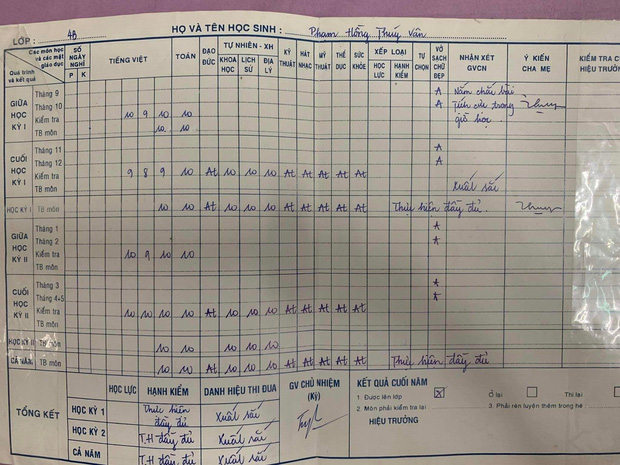 LỚP: 4B HỌ VÀ TÊN HỌC SINH: Phạm Hồng Thúy Vân
Các môn học và các mặt giáo dục
Quá trình và kết quả
SỐ NGÀY NGHỈ
P K
TIẾNG VIỆT
TOÁN
ĐẠO ĐỨC
TỰ NHIÊN - XH
KHOA HỌC LỊCH SỬ ĐỊA LÝ
KỸ THUẬT
HÁT NHẠC
MỸ THUẬT
THỂ DỤC
SỨC KHỎE
XẾP LOẠI
HỌC LỰC HẠNH KIỂM
TỰ CHỌN
VỞ SẠCH CHỮ ĐẸP
NHẬN XÉT GVCN
Ý KIẾN CHA MẸ
KIỂM TRA C
HIỆU TRƯỞNG
GIỮA HỌC KỲ I
Tháng 9 A Nắm chắc bài
Tháng 10 A Tích cực trong
Kiểm tra 10 9 10 10 giờ học.
TB môn 10 10
CUỐI HỌC KỲ I
Tháng 11 A
Tháng 12 A
Kiểm tra 9 8 9 10 At 10 10 10 At At At At At
TB môn Xuất sắc
HỌC KỲ I TB môn 10 10 At 10 10 10 At At At At At Thực hiện đầy đủ.
GIỮA HỌC KỲ II
Tháng 1 A
Tháng 2 A
Kiểm tra 10 9 10 10
TB môn
CUỐI HỌC KỲ II
Tháng 3 A
Tháng 4+5 A
Kiểm tra 10 10 10 10 At 10 10 10 At At At At At
TB môn
HỌC KỲ II TB môn 10 10 10 10 10
CẢ NĂM TB môn 10 10 At 10 10 10 At At At At At Thực hiện đầy đủ
TỔNG KẾT
HỌC LỰC HẠNH KIỂM DANH HIỆU THI ĐUA
HỌC KỲ 1 Thực hiện đầy đủ Xuất sắc
HỌC KỲ 2 T.H đầy đủ Xuất sắc
CẢ NĂM T.H đầy đủ Xuất sắc
GV CHỦ NHIỆM
(Ký)
KẾT QUẢ CUỐI NĂM
1. Được lên lớp X Ở lại Thi lại
2. Môn phải kiểm tra lại 3. Phải rèn luyện thêm trong hè
HIỆU TRƯỞNG